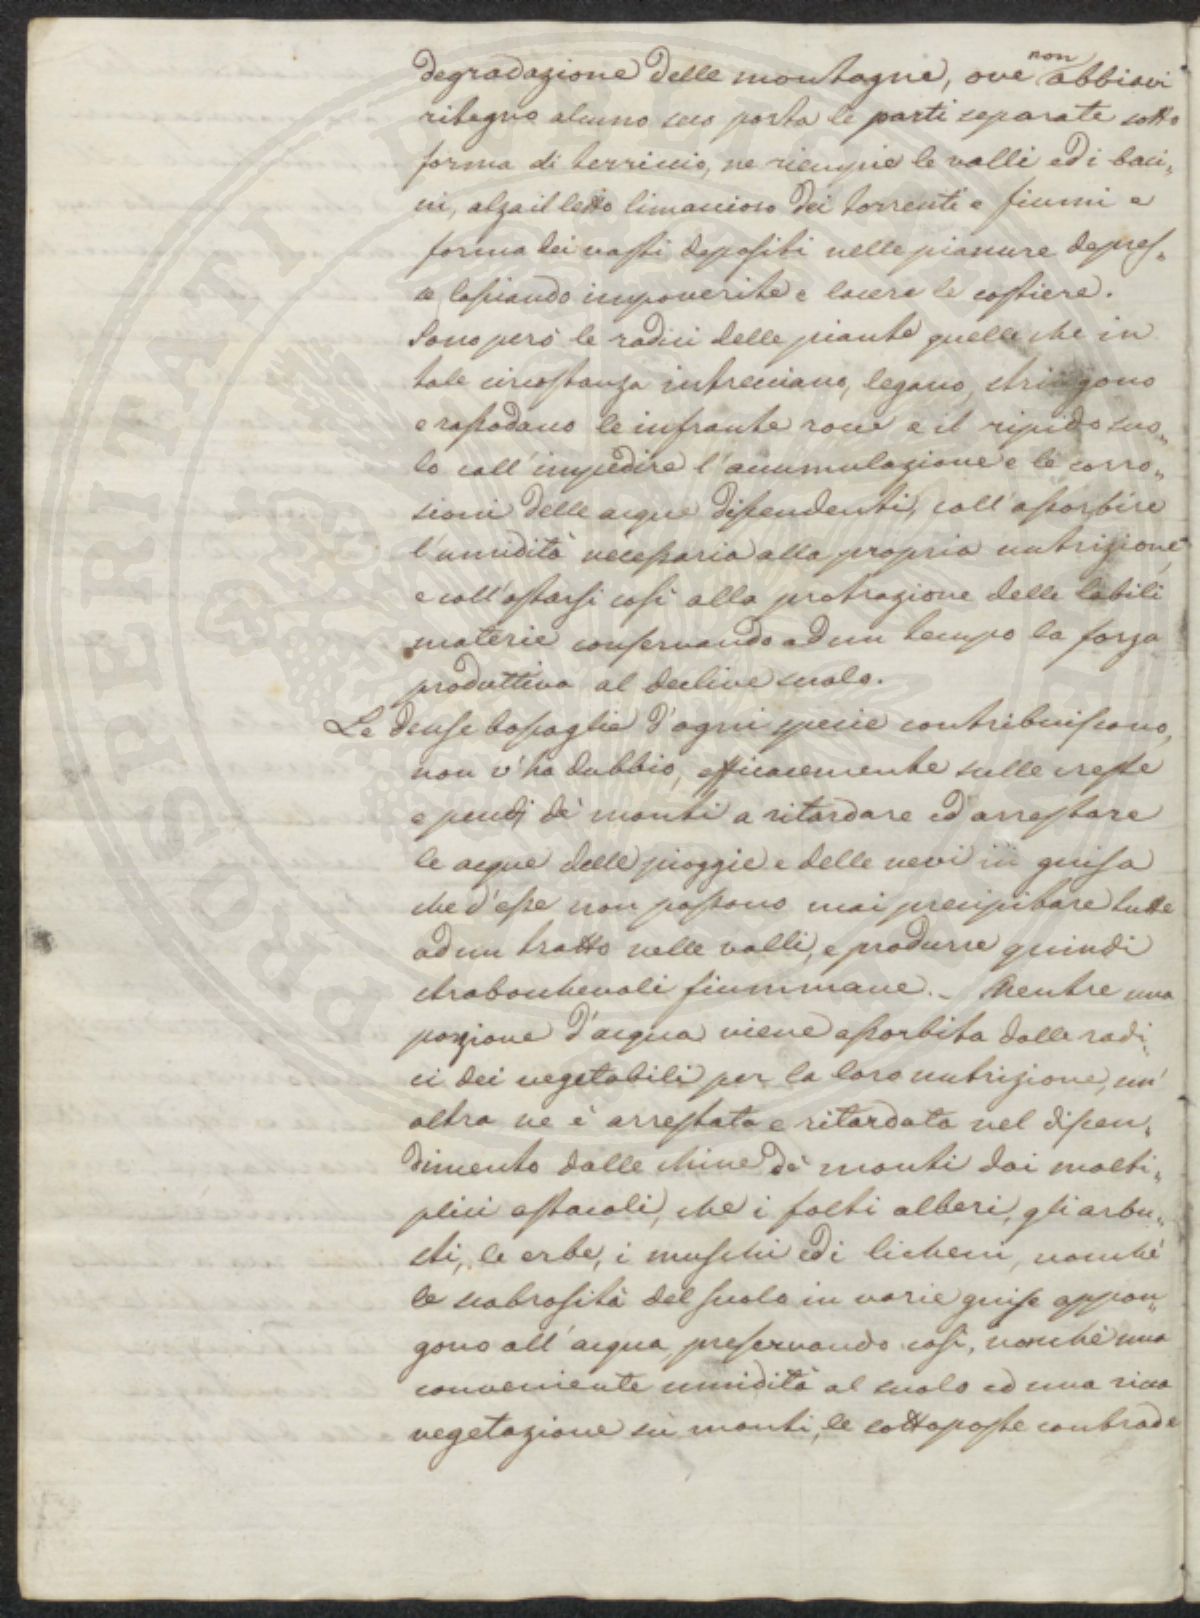 non
degradazione delle montagne, ove abbiavi
ritegno alcuno seco porta le parti separate sotto
forma di terriccio, ne riempie le valli ed i baci„
ni, alza il letto limaccioso dei torrenti e fiumi e
forma dei vasti depositi nelle pianure depres„
se lasciando impoverite e lacere le costiere.
Sono però le radici delle piante quelle che in
tale circostanza intrecciano, legano, stringono
e rassodano le infrante rocce e il ripido suo„
lo coll'impedire l'accumulazione e le corro„
sioni delle acque discendenti, coll'assorbire
l'umidità necessaria alla propria nutrizione,
e coll'ostarsi così alla protrazione delle labili
materie conservando ad un tempo la forza
produttiva al declive suolo.
Le dense boscaglie d'ogni specie contribuiscono,
non v'ha dubbio, efficacemente sulle creste
e pendj de' monti a ritardare ed arrestare
le acque delle pioggie e delle nevi in guisa
che d'esse non possono mai precipitare tutte
ad un tratto nelle valli, e produrre quindi
strabocchevoli fiummane. - Mentre una
porzione d'acqua viene assorbita dalle radi„
ci dei vegetabili per la loro nutrizione, un'
altra ne è arrestata e ritardata nel discen„
dimento dalle chine de' monti dai molti„
plici ostacoli, che i folti alberi, gli arbu„
sti, le erbe, i muschi ed i licheni, nonché
le scabrosità del suolo in varie guise oppon„
gono all'acqua, preservando così, nonché una
conveniente umidità al suolo ed una ricca
vegetazione sui monti, le sottoposte contrade
PROSPERITATI PUBLICAE